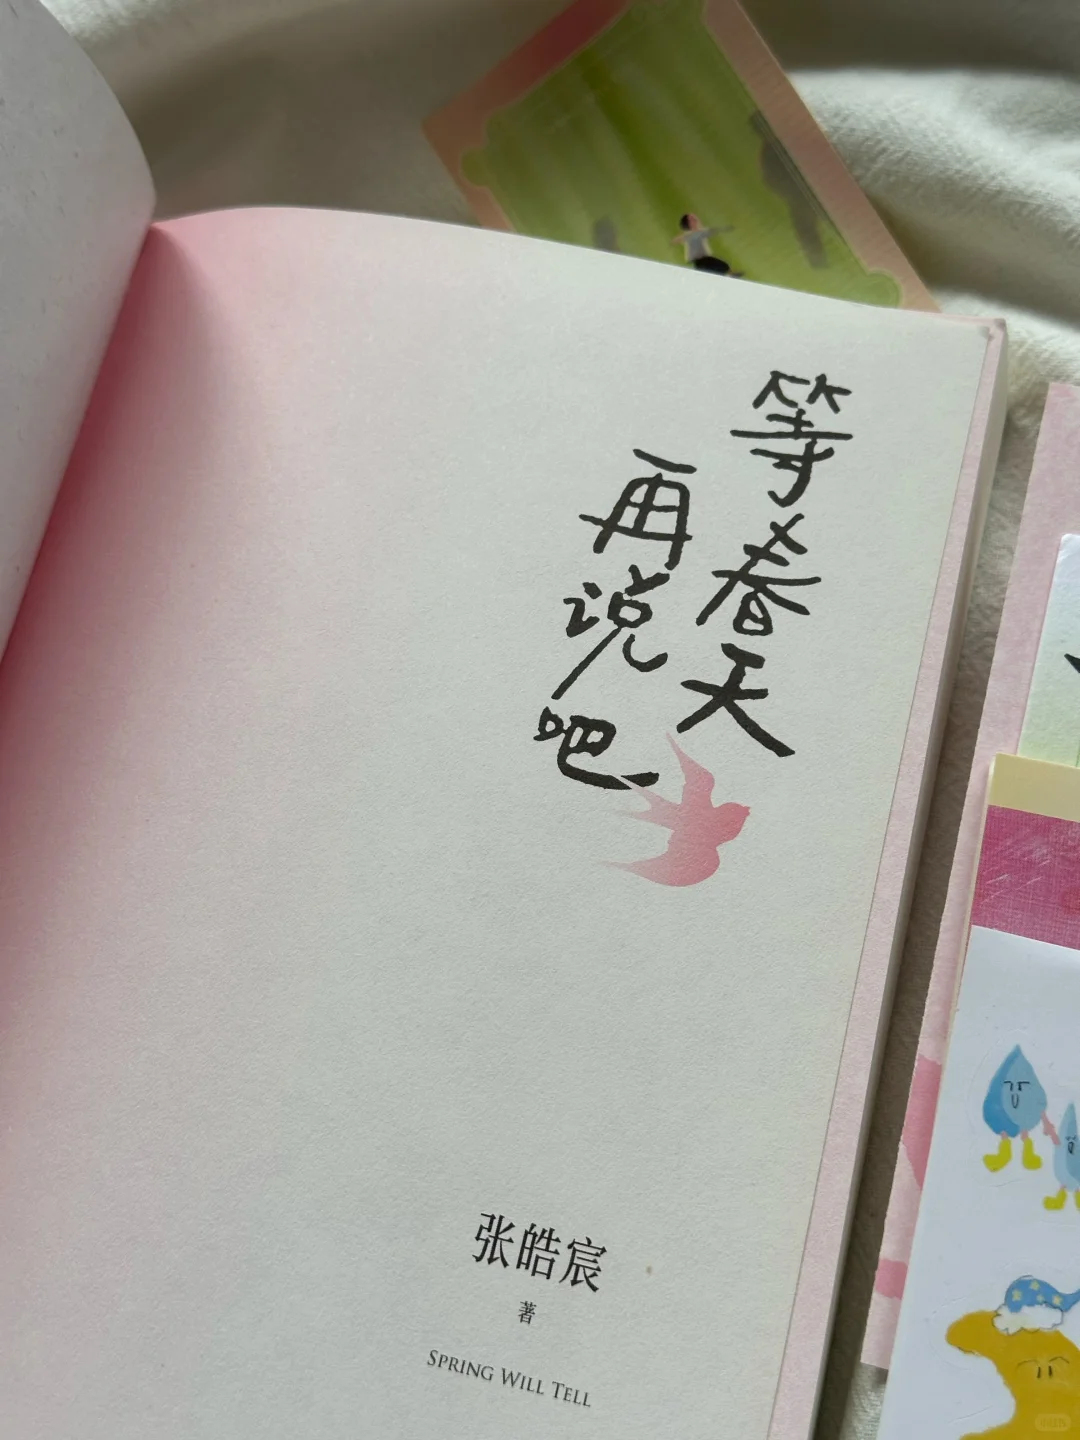 等春天
再说吧
张皓宸
著
SPRING WILL TELL